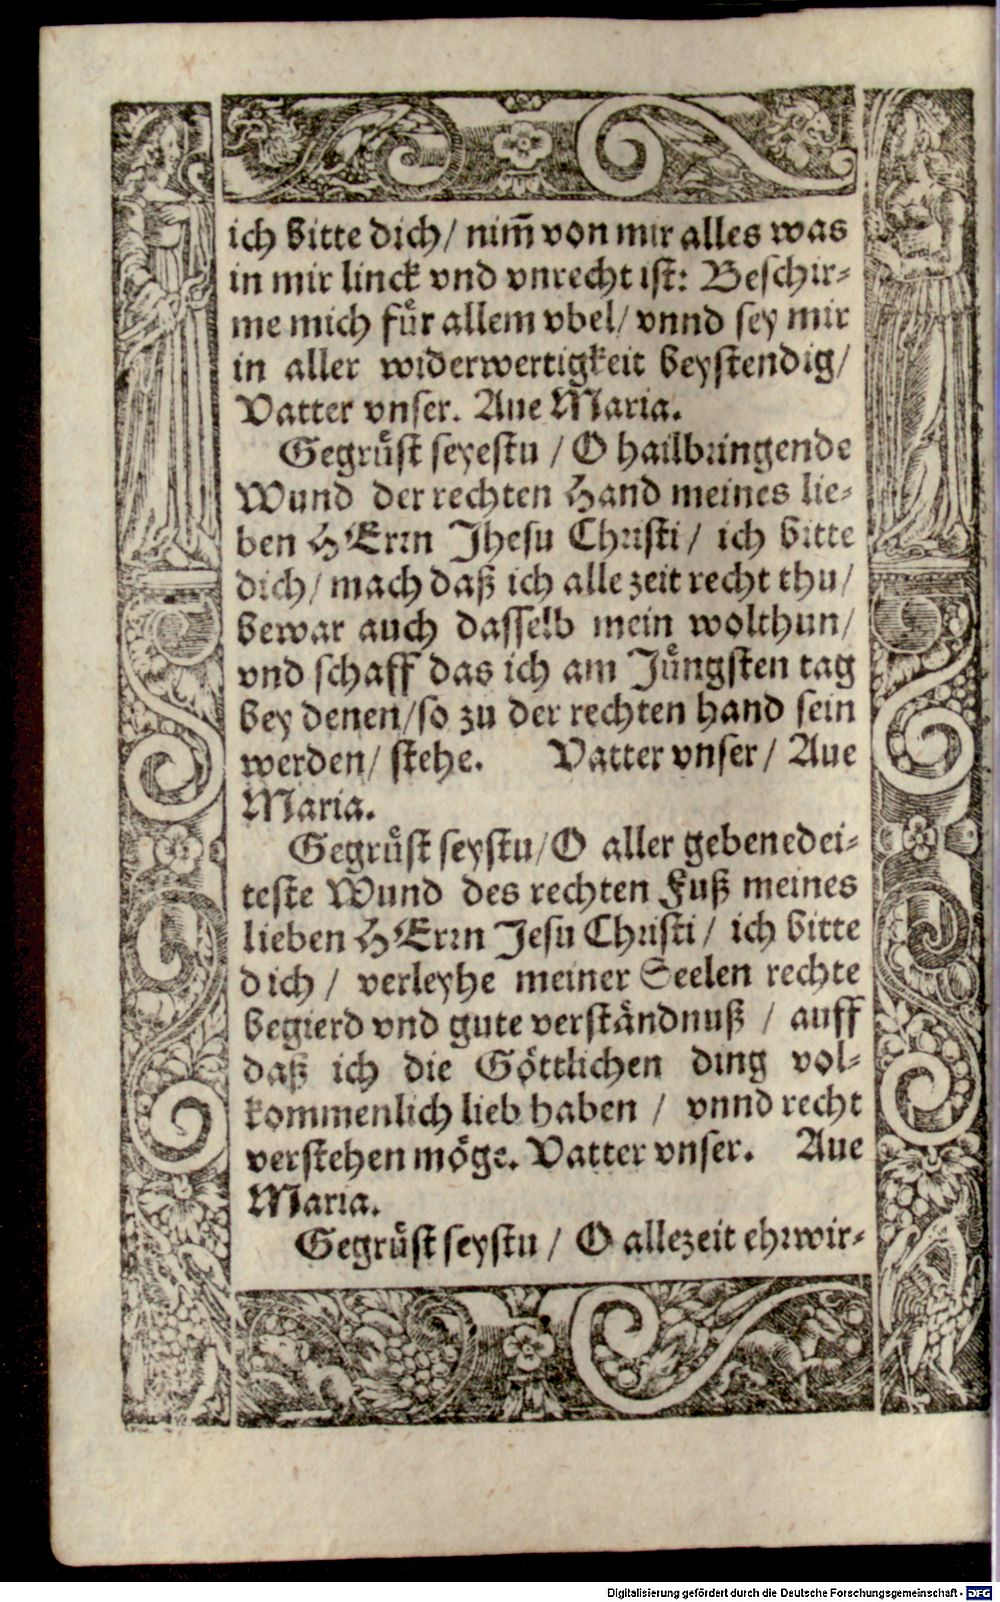 ich bitte dich/ nim̃ von mir alles was
in mir linck vnd vnrecht ist: Beschir-
me mich fuͤr allem vbel/ vnnd sey mir
in aller widerwertigkeit beystendig/
Vatter vnser. Aue Maria.
Gegruͤst seyestu / O hailbringende
Wund der rechten Hand meines lie-
ben HErrn Jhesu Christi/ ich bitte
dich/ mach daß ich alle zeit recht thu/
bewar auch dasselb mein wolthun/
vnd schaff das ich am Juͤngsten tag
bey denen/so zu der rechten hand sein
werden/ stehe. Vatter vnser/ Aue
Maria.
Gegruͤst seystu/O aller gebenedei-
teste Wund des rechten Fuß meines
lieben HErrn Jesu Christi/ ich bitte
dich/ verleyhe meiner Seelen rechte
begierd vnd gute verstaͤndnuß / auff
daß ich die Goͤttlichen ding vol-
kommenlich lieb haben / vnnd recht
verstehen moͤge. Vatter vnser. Aue
Maria.
Gegruͤst seystu / O allezeit ehrwir-
Digitalisierung gefördert durch die Deutsche Forschungsgemeinschaft - DFG